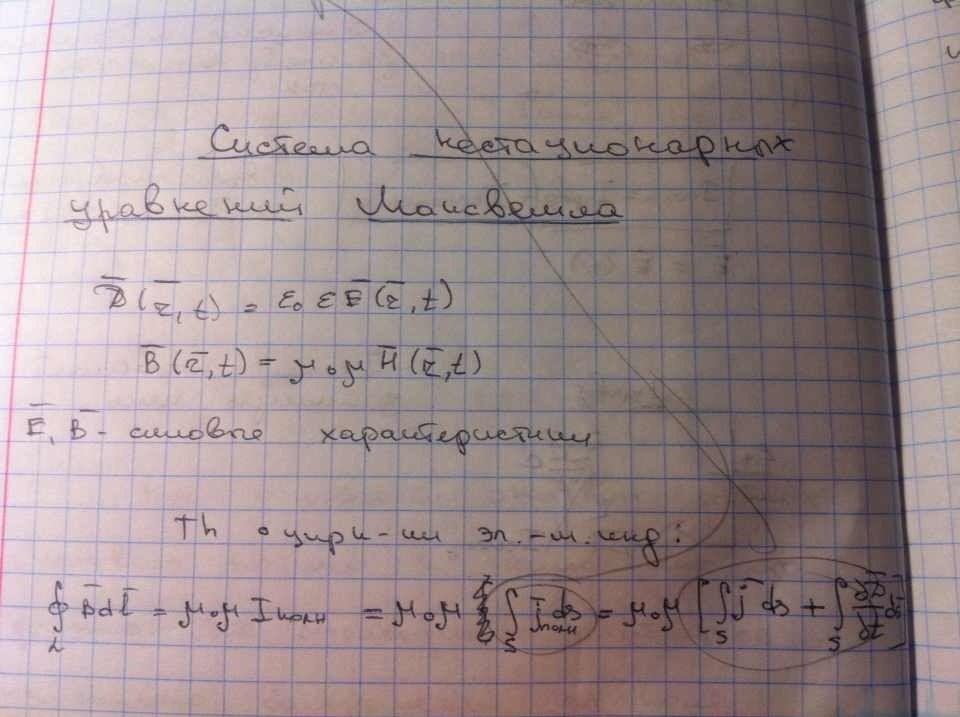 Система нестационарных
уравнений Максвелла
D̅(r̅,t) = ε₀ εE̅(r̅,t)
B̅(r̅,t) = μ₀μ H̅(r̅,t)
E̅, B̅ - силовые характеристики
Th о цирк-ии эл.-м. инд:
∮_L B̅dl̅ = μ₀μ Iполн = μ₀μ ∫_S j̅полн ds = μ₀μ [∫_S j̅ ds + ∫_S ∂D̅/∂t ds̅]